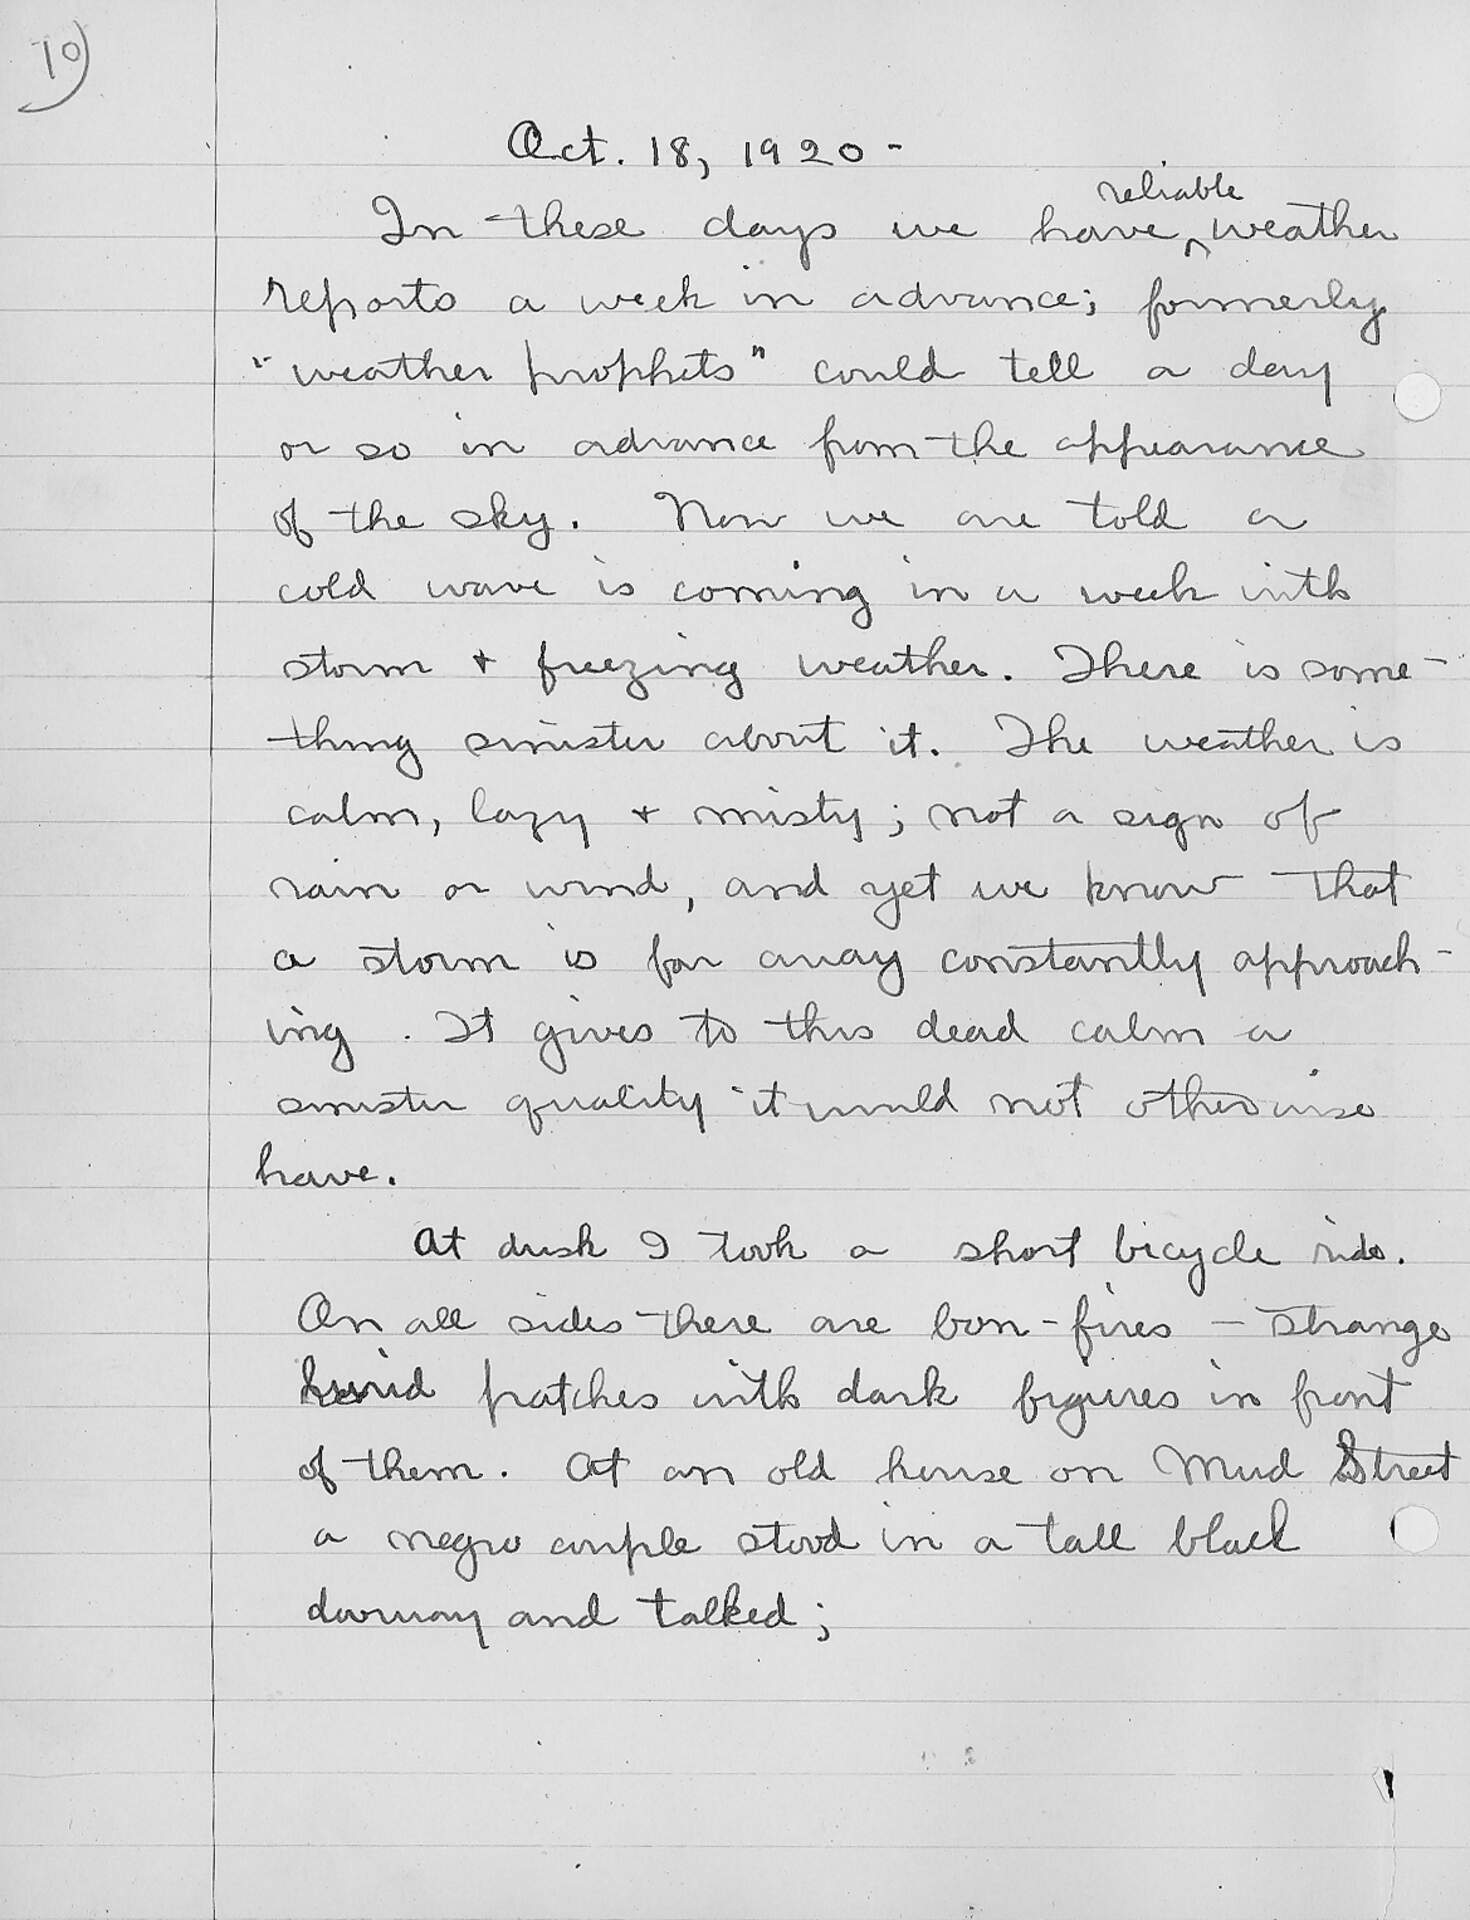 10
Oct. 18, 1920 -
reliable
In these days we have ^ weather
reports a week in advance; formerly
"weather prophets" could tell a day
or so in advance from the appearance
of the sky. Now we are told a
cold wave is coming in a week with
storm + freezing weather. There is some-
thing sinister about it. The weather is
calm, lazy + misty; not a sign of
rain or wind, and yet we know that
a storm is far away constantly approach-
ing. It gives to this dead calm a
sinister quality it would not otherwise
have.
At dusk I took a short bicycle ride.
On all sides there are bon-fires - strange
lurid patches with dark figures in front
of them. At an old house on Mud Street
a negro couple stood in a tall black
doorway and talked;